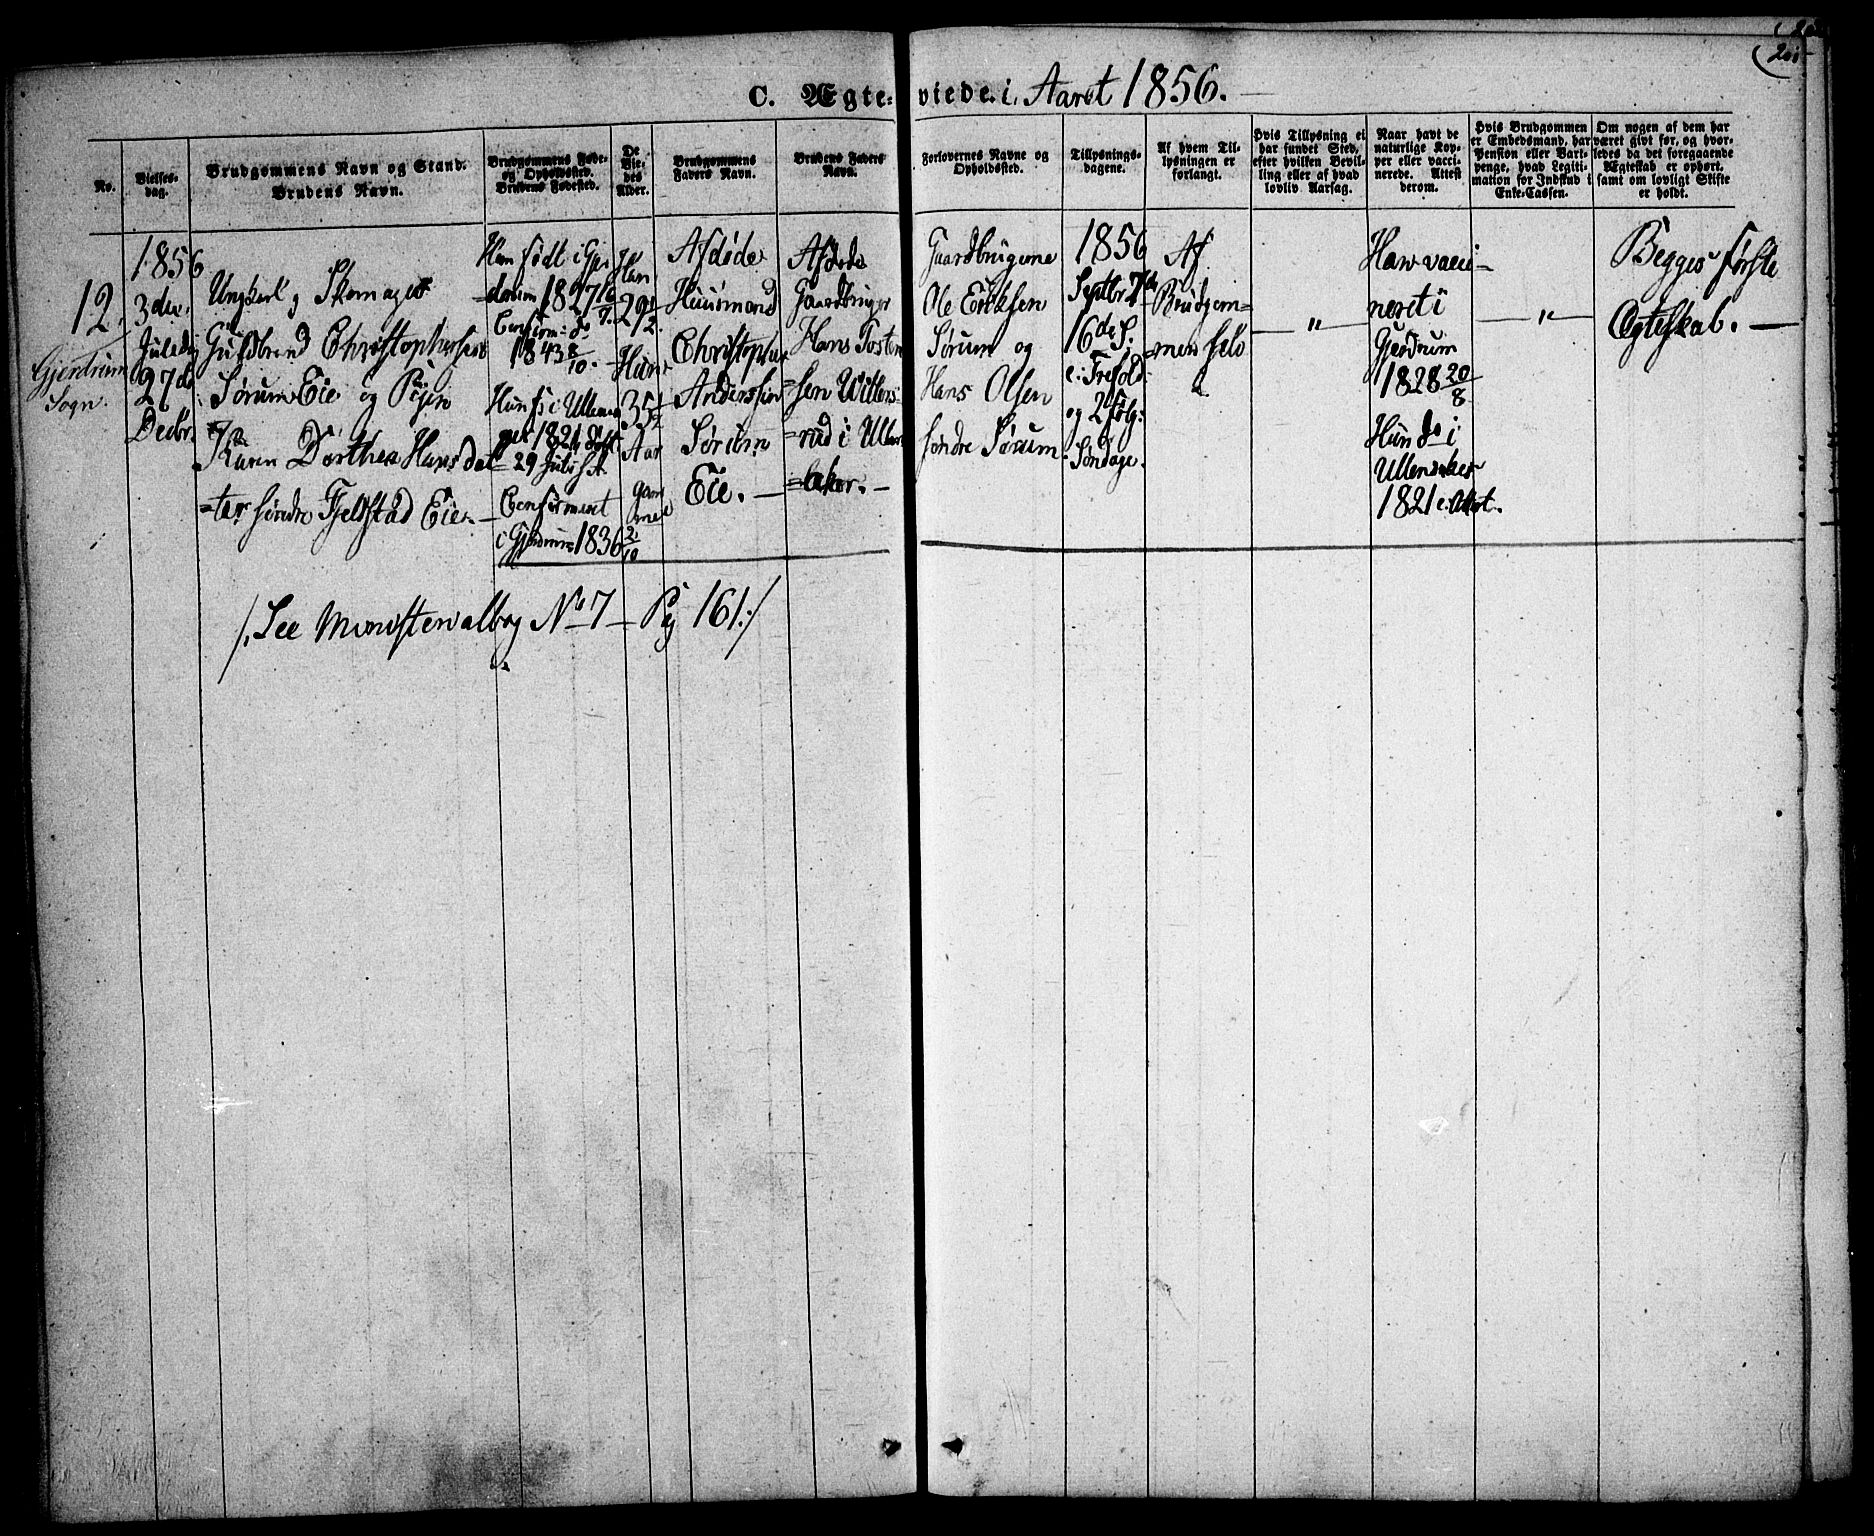 201
C. Ægte-viede i Aaret 1856.
No.
Vielses-
dag.
Brudgommens Navn og Stand.
Brudens Navn.
Brudgommens Føde-
og Opholdssted.
Brudens Fødested.
De
Vie-
des
Alder.
Brudgommens
Faders Navn.
Brudens Faders
Navn.
Forlovernes Navne og
Opholdssted.
Tillysnings-
dagene.
Af hvem Til-
lysningen er
forlangt.
Hvis Tillysning ei
har fundet Sted,
efter hvilken Bevil-
ling eller af hvad
lovliv Aarsag.
Naar havt de
naturlige Kop-
per eller vacci-
nerede. Attest
derom.
Hvis Brudgommen
er Embedsmand, har
Pension eller Vart-
penge, hvad Legiti-
mation for Indskud i
Enke-Cassen.
Om nogen af dem har
været givt før, og hvor-
ledes da det foregaaende
Ægteskab er ophørt.
samt om lovligt Skifte
er holdt.
12.
Gjerdrum
Sogn.
1856
3die
Juledag
27de
Decbr.
Ungkarl og Skomager
Guldbrand Christophersen
Sørum Eie og Pigen
Karen Dorthea Hansdat
=ter søndre Fjeldstad Eie.
Han født i Gje
=derum 1827 16/9.
Confirm: do
1843 8/10.
Hun f. i Ullensa
ker 1821 døbt
29 Juli s. A.
Confirmeret
i Gjerdrum 1836 2/10
Han
29 1/2
Hun
35 1/2
Aar
gam
mel
Afdøde
Huusmand
Christopher
Anderssen
Sørum
Eie. —
Afdøde
Gaardbruger
Hans Tosten
=sen Willers
=rud i Ullens
=aker. —
Gaardbrugerne
Ole Eriksen
Sørum og
Hans Olsen
søndre Sørum
1856
Septbr. 7de
16de S.
e. Trefold.
og 2 følg:
Søndage.
Af
Brudgom=
=men selv
— " —
Han vacci-
neret i
Gjerdrum
1828 20/8
Hun do i
Ullensaker
1821 e. Attest.
— " —
Begges første
Ægteskab. —
/: See Ministerialbog No 7 — Pag 161 :/